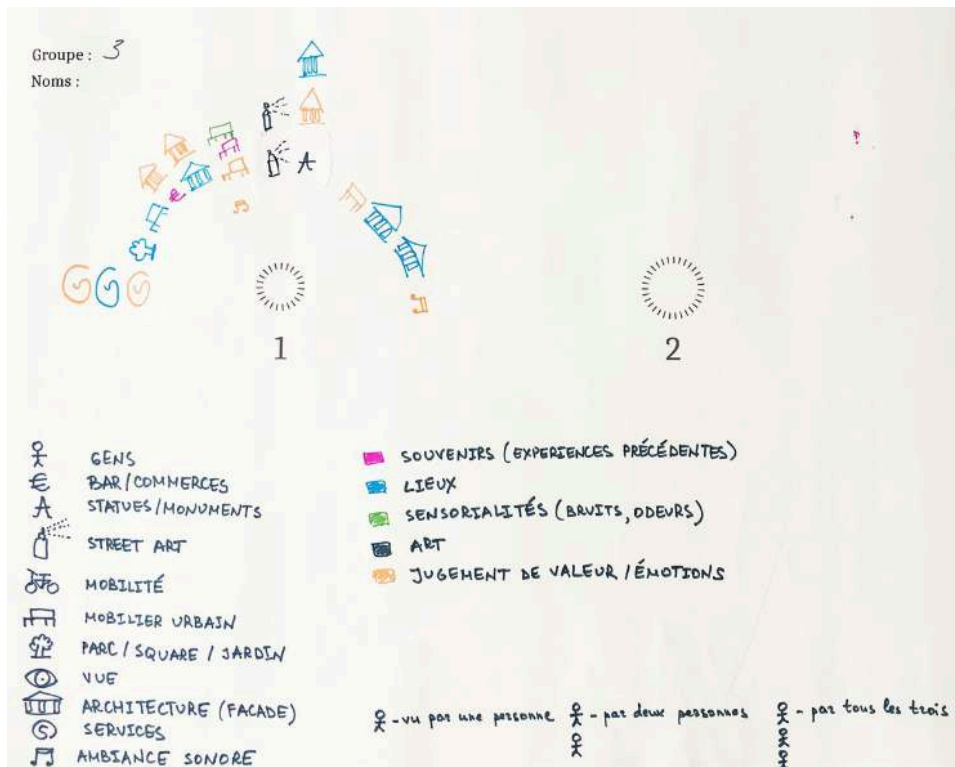 Groupe : 3
Noms :
1
2
GENS
BAR/COMMERCES
STATUES/MONUMENTS
STREET ART
MOBILITÉ
MOBILIER URBAIN
PARC/SQUARE/JARDIN
VUE
ARCHITECTURE (FACADE)
SERVICES
AMBIANCE SONORE
SOUVENIRS (EXPERIENCES PRÉCÉDENTES)
LIEUX
SENSORIALITÉS (BRUITS, ODEURS)
ART
JUGEMENT DE VALEUR / ÉMOTIONS
- vu par une personne
- par deux personnes
- par tous les trois